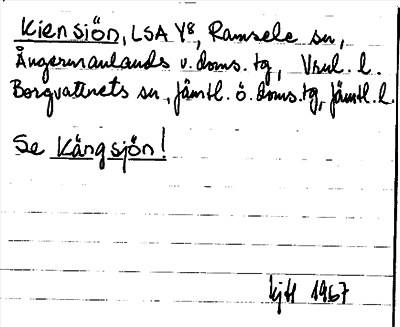 Kiensjön, LSA Y8, Ramsele sn,
Ångermanlands v. doms. tg, Vnl. l.
Borgvattnets sn, Jämtl. ö. doms. tg, Jämtl. l.
Se Kängsjön!
1967